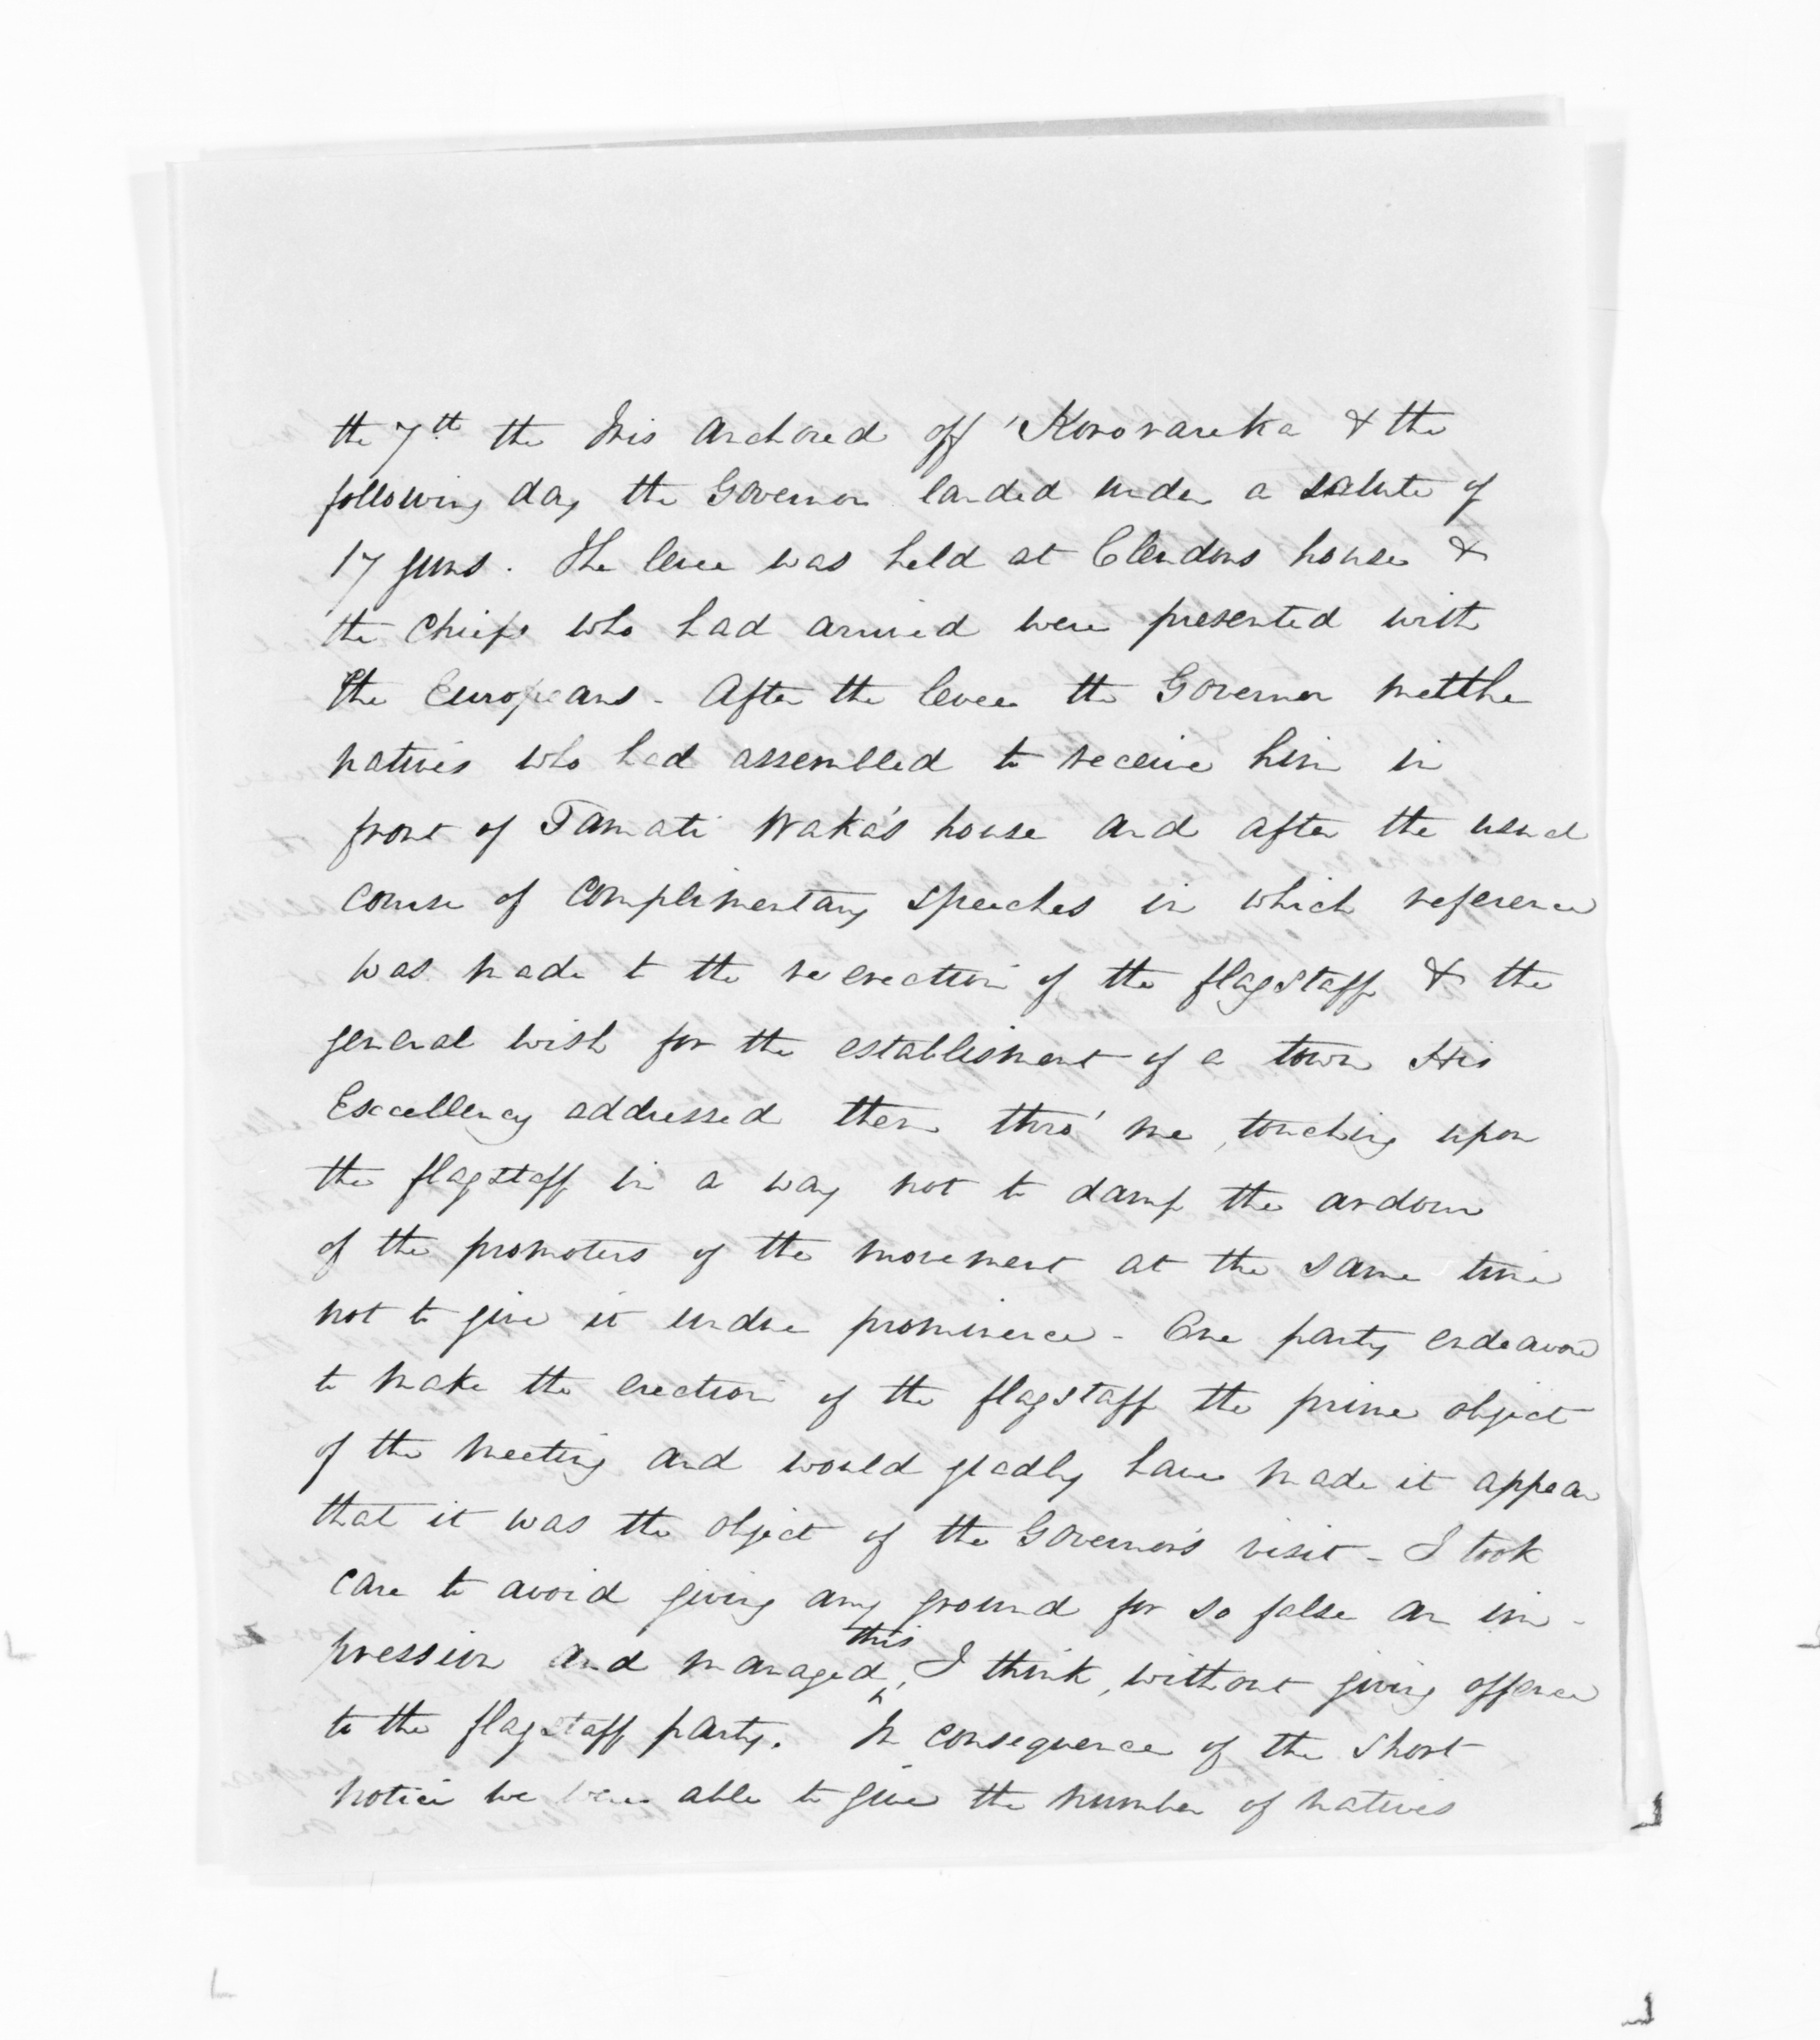 the 7th the Iris anchored off Kororareka & the
following day the Governor landed under a salute of
17 guns. The levee was held at Clendons house &
the Chiefs who had arrived were presented with
the Europeans - After the levee the Governor met the
natives who had assembled to receive him in
front of Tamati Waka's house and after the usual
course of complimentary speeches in which reference
was made to the re erection of the flagstaff & the
general wish for the establisment of a town His
Excellency addressed them thro' me, touching upon
the flagstaff in a way not to damp the ardour
of the promoters of the movement at the same time
not to give it undue prominence - One party endeavored
to make the erection of the flagstaff the prime object
of the meeting and would gladly have made it appear
that it was the object of the Governor's visit - I took
care to avoid giving any ground for so false an im-
pression and managed this, I think, without giving offence
to the flagstaff party. In consequence of the short
notice we were able to give the number of natives